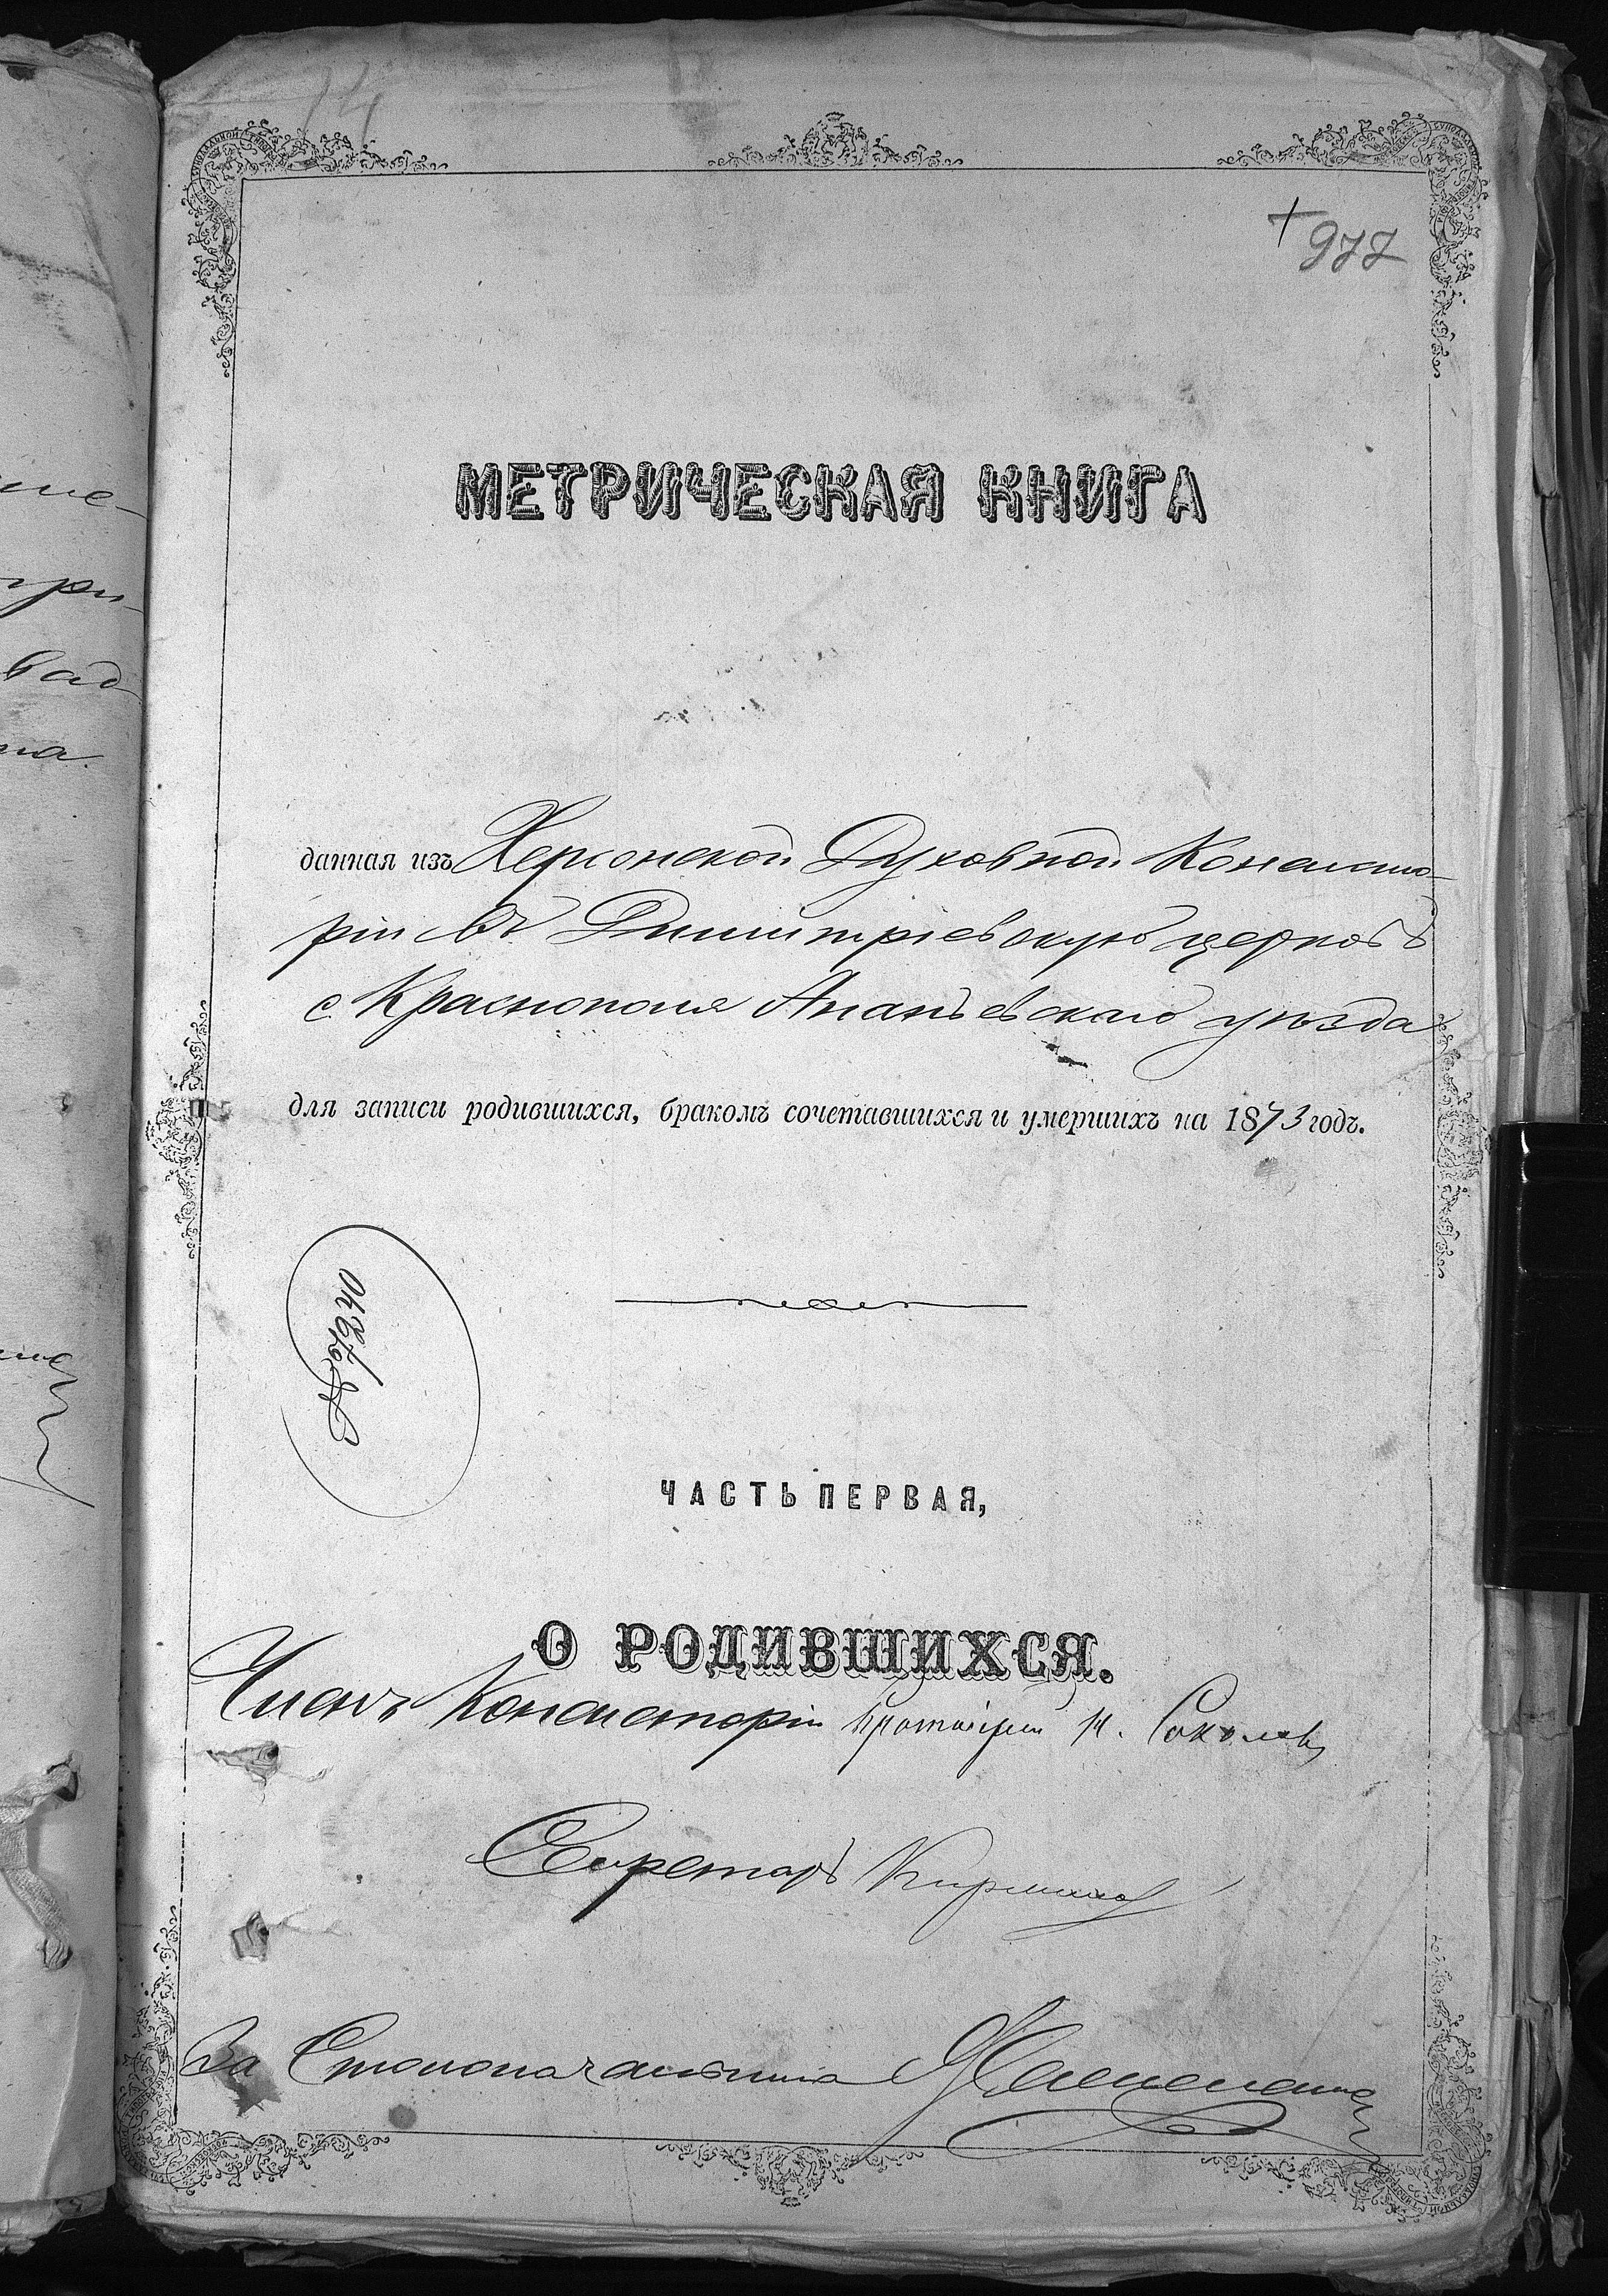 14
+ 977
МЕТРИЧЕСКАЯ КНИГА
данная изъ Херсонской Духовной Консисто-
ріи въ Димитріевскую церковь
с. Краснополя Ананьевскаго уѣзда
для записи родившихся, бракомъ сочетавшихся и умершихъ на 1873 годъ.
ЧАСТЬ ПЕРВАЯ,
О РОДИВШИХСЯ.
Членъ Консисторіи Протоіерей Н. Соколовъ
Секретарь
За Столоначальника